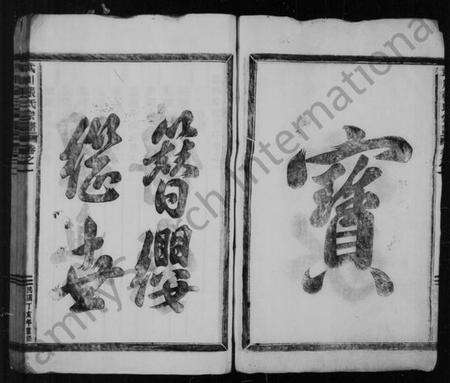 寶
簪纓
繼世
FamilySearch International